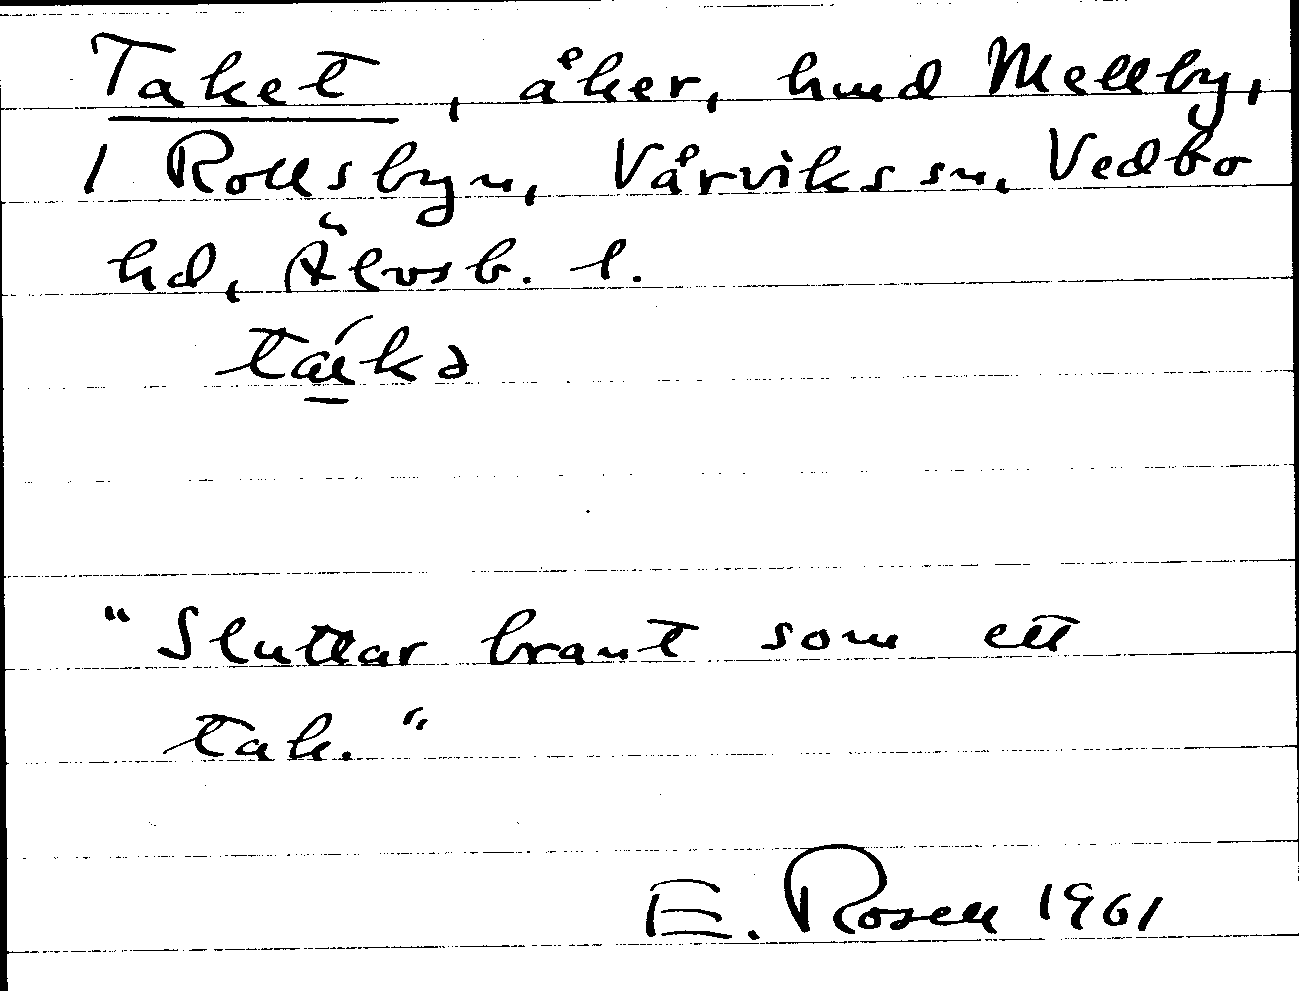 Taket, åker, hmd Mellby,
1 Rollsbyn, Vårviks sn. Vedbo
hd, Älvsb. l.
"Sluttar brant som ett
tak."
E. Rosell 1961